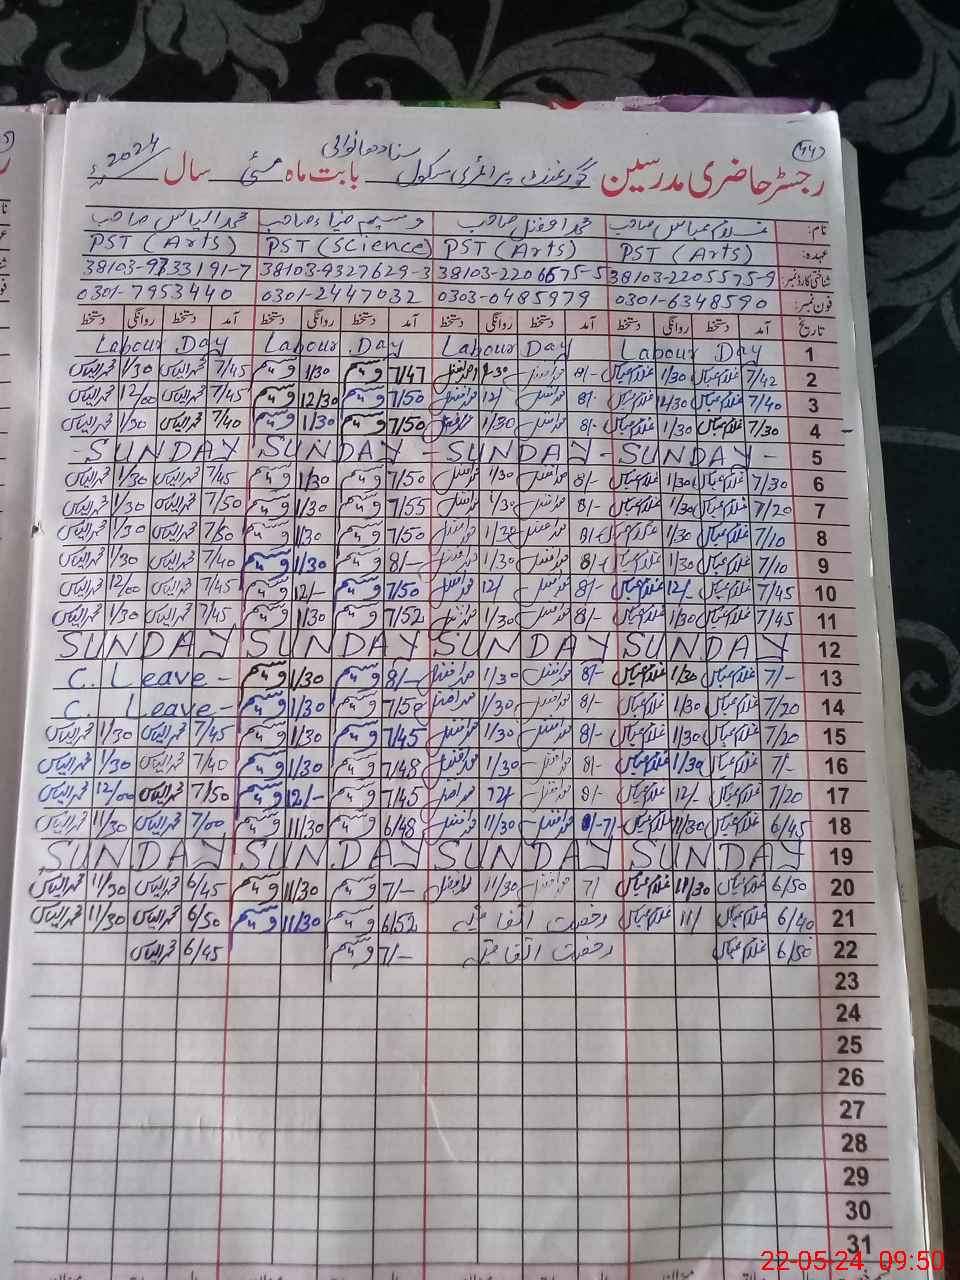 44
رجسٹر حاضری مدرسین گورنمنٹ پرائمری سکول بابت ماہ مئی سال 2024
نام: غلام عباس صاحب محمد افضل صاحب وسیم ضیاء صاحب محمد الیاس صاحب
عہدہ: PST (Arts) PST (Arts) PST (Science) PST (Arts)
شناختی کارڈ نمبر: 38103-2205575-9 38103-2206575-5 38103-9327629-3 38103-9733191-7
فون نمبر: 0301-6348590 0303-0485979 0301-2447032 0301-7953440
تاریخ آمد دستخط روانگی دستخط آمد دستخط روانگی دستخط آمد دستخط روانگی دستخط آمد دستخط روانگی دستخط
1 Labour Day Labour Day Labour Day Labour Day
2 7/42 غلام عباس 1/30 غلام عباس 8/- محمد افضل 1/30 محمد افضل 7/47 وسیم 1/30 وسیم 7/45 محمد الیاس 1/30 محمد الیاس
3 7/40 غلام عباس 12/30 غلام عباس 8/- محمد افضل 12/ محمد افضل 7/50 وسیم 12/30 وسیم 7/45 محمد الیاس 12/00 محمد الیاس
4 7/30 غلام عباس 1/30 غلام عباس 8/- محمد افضل 1/30 محمد افضل 7/50 وسیم 1/30 وسیم 7/40 محمد الیاس 1/30 محمد الیاس
5 SUNDAY - SUNDAY - SUNDAY - SUNDAY -
6 7/30 غلام عباس 1/30 غلام عباس 8/- محمد افضل 1/30 محمد افضل 7/50 وسیم 1/30 وسیم 7/45 محمد الیاس 1/30 محمد الیاس
7 7/20 غلام عباس 1/30 غلام عباس 8/- محمد افضل 1/30 محمد افضل 7/55 وسیم 1/30 وسیم 7/50 محمد الیاس 1/30 محمد الیاس
8 7/10 غلام عباس 1/30 غلام عباس 8/- محمد افضل 1/30 محمد افضل 7/50 وسیم 1/30 وسیم 7/50 محمد الیاس 1/30 محمد الیاس
9 7/10 غلام عباس 1/30 غلام عباس 8/- محمد افضل 1/30 محمد افضل 8/- وسیم 1/30 وسیم 7/40 محمد الیاس 1/30 محمد الیاس
10 7/45 غلام عباس 12/- غلام عباس 8/- محمد افضل 12/ محمد افضل 7/50 وسیم 12/- وسیم 7/45 محمد الیاس 12/00 محمد الیاس
11 7/45 غلام عباس 1/30 غلام عباس 8/- محمد افضل 1/30 محمد افضل 7/52 وسیم 1/30 وسیم 7/45 محمد الیاس 1/30 محمد الیاس
12 SUNDAY SUNDAY SUNDAY SUNDAY
13 7/- غلام عباس 1/30 غلام عباس 8/- محمد افضل 1/30 محمد افضل 8/- وسیم 1/30 وسیم C. Leave -
14 7/20 غلام عباس 1/30 غلام عباس 8/- محمد افضل 1/30 محمد افضل 7/58 وسیم 1/30 وسیم C. Leave -
15 7/20 غلام عباس 1/30 غلام عباس 8/- محمد افضل 1/30 محمد افضل 7/45 وسیم 1/30 وسیم 7/45 محمد الیاس 1/30 محمد الیاس
16 7/- غلام عباس 1/30 غلام عباس 8/- محمد افضل 1/30 محمد افضل 7/48 وسیم 1/30 وسیم 7/40 محمد الیاس 1/30 محمد الیاس
17 7/20 غلام عباس 12/- غلام عباس 8/- محمد افضل 12/ محمد افضل 7/45 وسیم 12/- وسیم 7/50 محمد الیاس 12/00 محمد الیاس
18 6/45 غلام عباس 11/30 غلام عباس 7/- محمد افضل 11/30 محمد افضل 6/48 وسیم 11/30 وسیم 7/00 محمد الیاس 11/30 محمد الیاس
19 SUNDAY SUNDAY SUNDAY SUNDAY
20 6/50 غلام عباس 11/30 غلام عباس 7/ محمد افضل 11/30 محمد افضل 7/- وسیم 11/30 وسیم 6/45 محمد الیاس 11/30 محمد الیاس
21 6/40 غلام عباس 11/ غلام عباس رخصت اتفاقیہ 6/52 وسیم 11/30 وسیم 6/50 محمد الیاس 11/30 محمد الیاس
22 6/50 غلام عباس رخصت اتفاقیہ 7/- وسیم 6/45 محمد الیاس
23
24
25
26
27
28
29
30
31
22-05-24 09:50